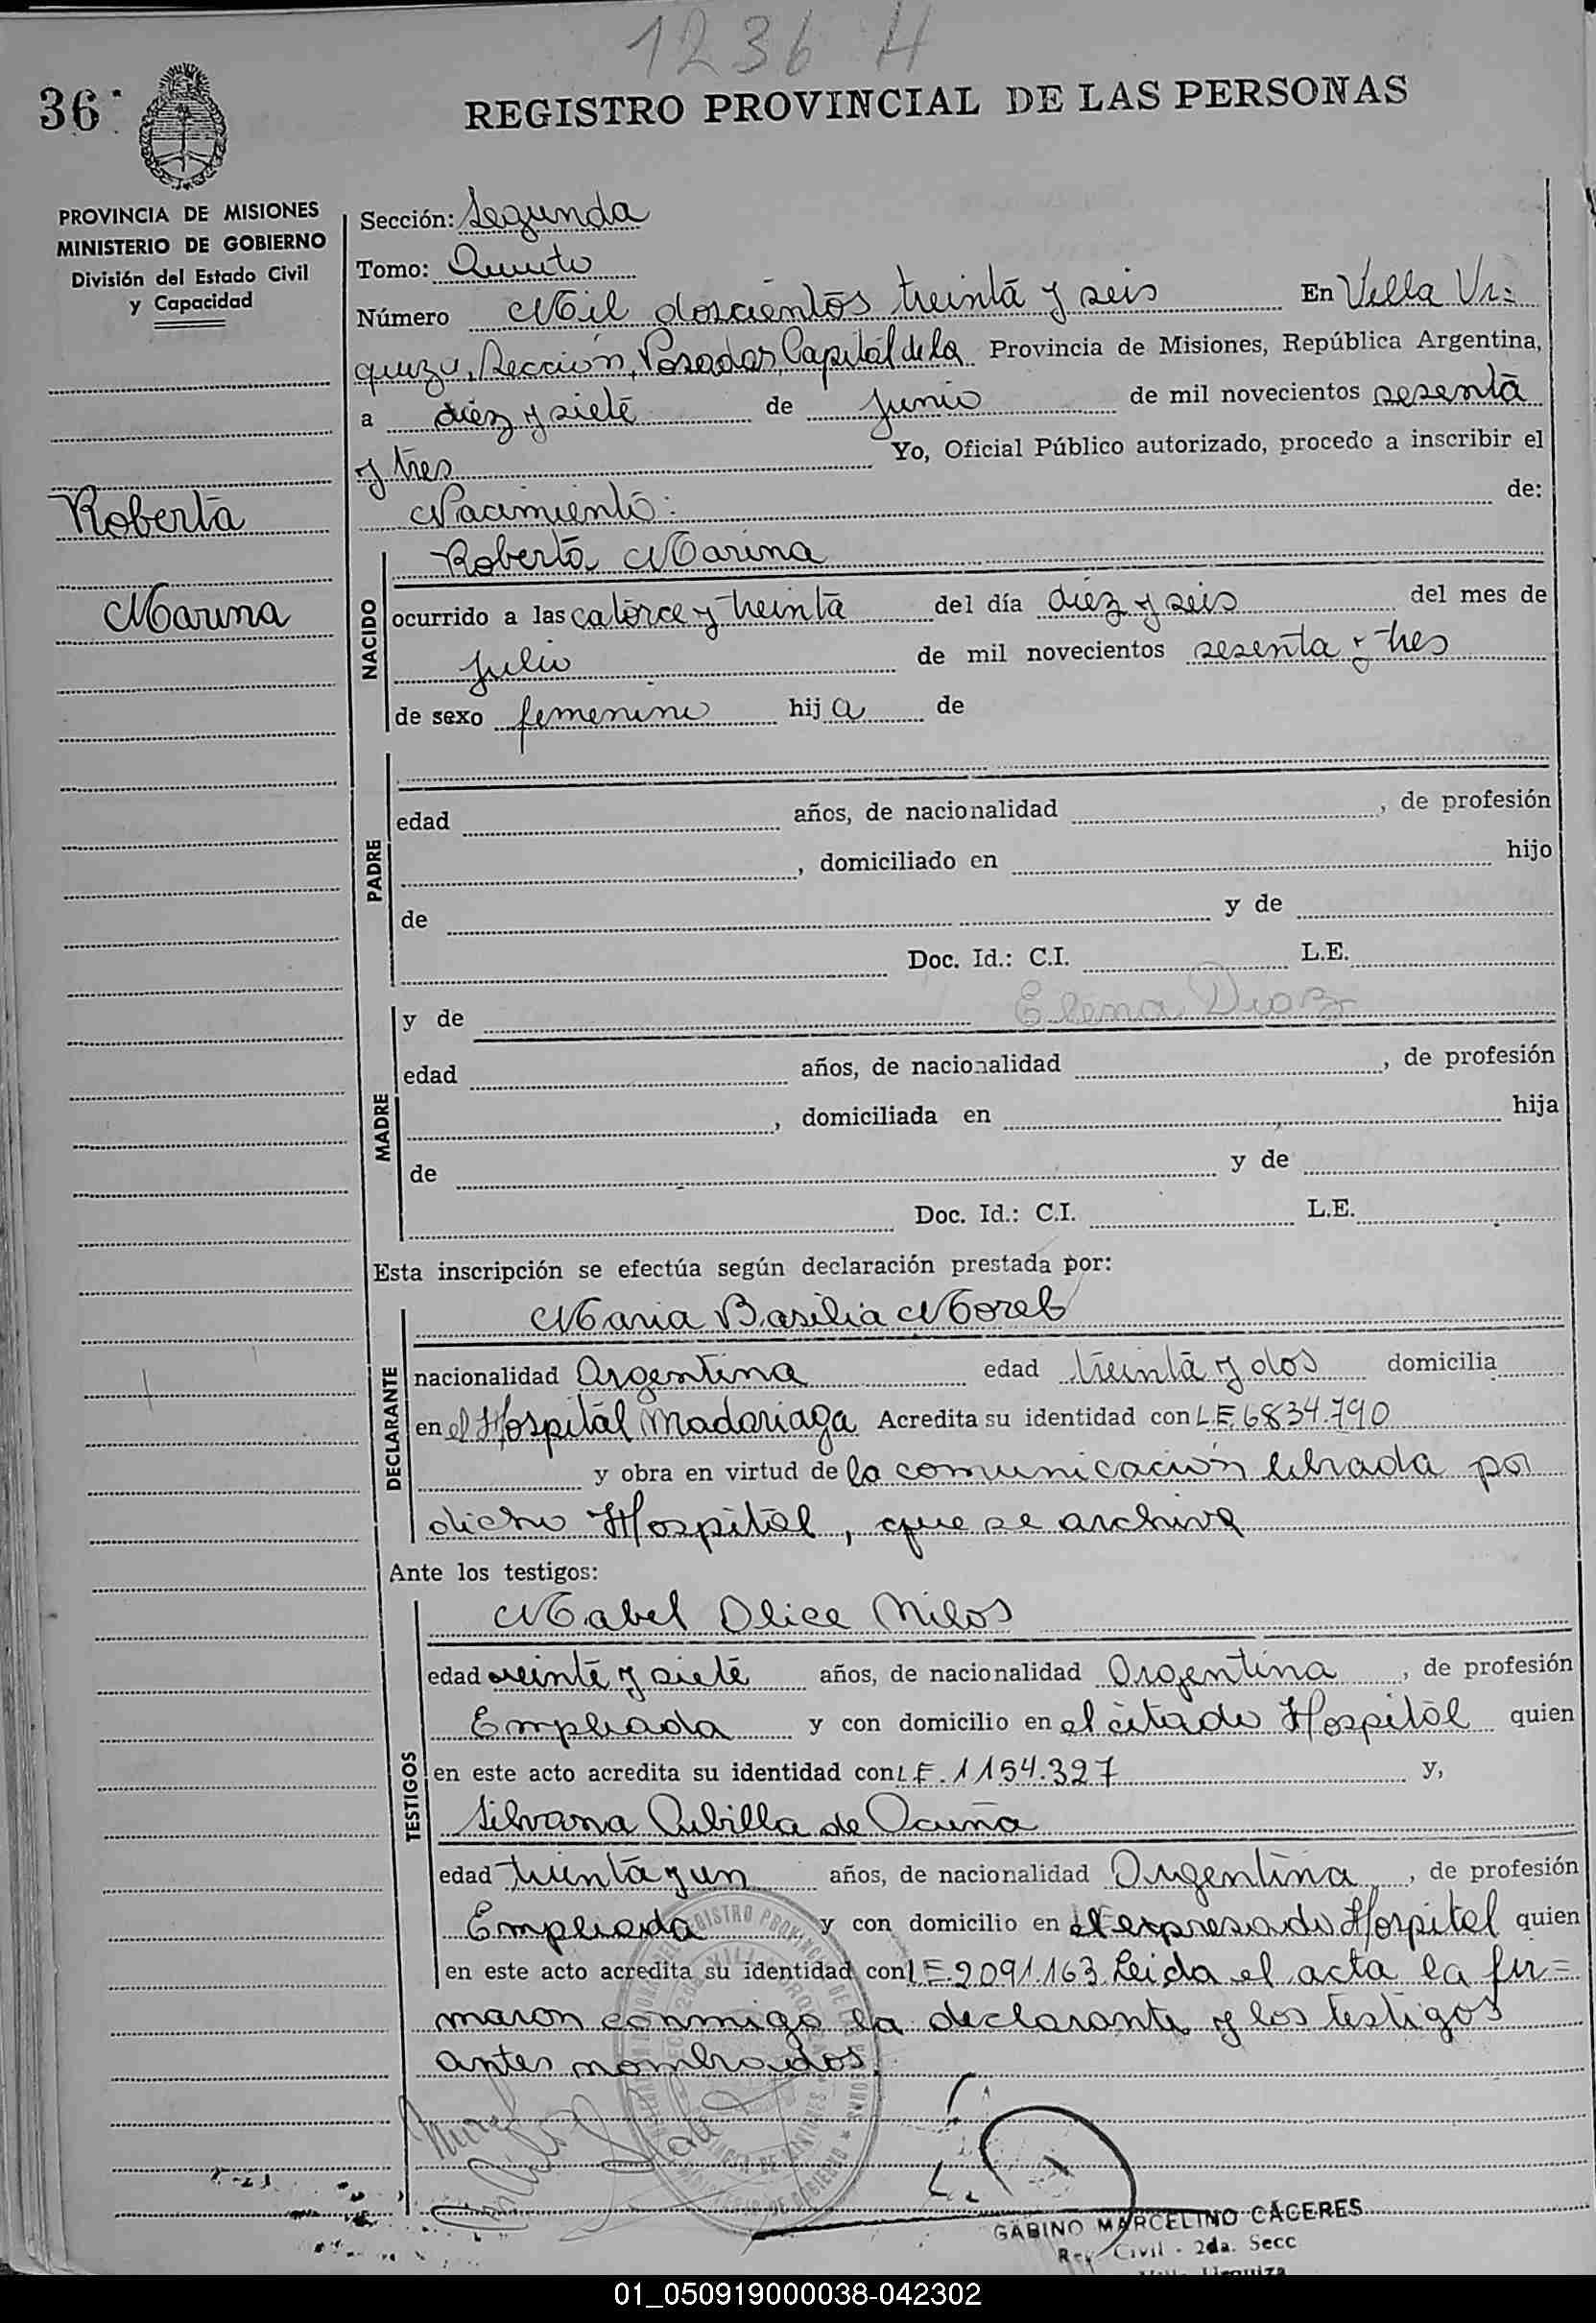 1236 H
36
REGISTRO PROVINCIAL DE LAS PERSONAS
PROVINCIA DE MISIONES
MINISTERIO DE GOBIERNO
División del Estado Civil
y Capacidad
Roberta
Marina
Sección: Segunda
Tomo: Quinto
Número Mil doscientos treinta y seis En Villa Ur=
quiza, Sección, Posadas, Capital de la Provincia de Misiones, República Argentina,
a diez y siete de Junio de mil novecientos sesenta
y tres Yo, Oficial Público autorizado, procedo a inscribir el
Nacimiento: de:
NACIDO
Roberta Marina
ocurrido a las catorce y treinta del día diez y seis del mes de
Julio de mil novecientos sesenta y tres
de sexo femenino hija de
PADRE
edad años, de nacionalidad , de profesión
, domiciliado en hijo
de y de
Doc. Id.: C.I. L.E.
MADRE
y de Elena Diaz
edad años, de nacionalidad , de profesión
, domiciliada en hija
de y de
Doc. Id.: C.I. L.E.
Esta inscripción se efectúa según declaración prestada por:
DECLARANTE
Maria Basilia Morel
nacionalidad Argentina edad treinta y dos domicilia
en el Hospital Madariaga Acredita su identidad con L.E. 6834.790
y obra en virtud de la comunicación librada por
dicho Hospital, que se archiva
Ante los testigos:
TESTIGOS
Mabel Olice Milos
edad veinte y siete años, de nacionalidad Argentina, de profesión
Empleada y con domicilio en el citado Hospital quien
en este acto acredita su identidad con L.E. 1154.327 y,
Silvana Cubilla de Acuña
edad treinta y un años, de nacionalidad Argentina, de profesión
Empleada y con domicilio en el expresado Hospital quien
en este acto acredita su identidad con L.E. 2091.163 Leida el acta la fir=
maron conmigo la declarante y los testigos
antes nombrados.
GABINO MARCELINO CÁCERES
Reg. Civil - 2da. Secc
01_050919000038-042302